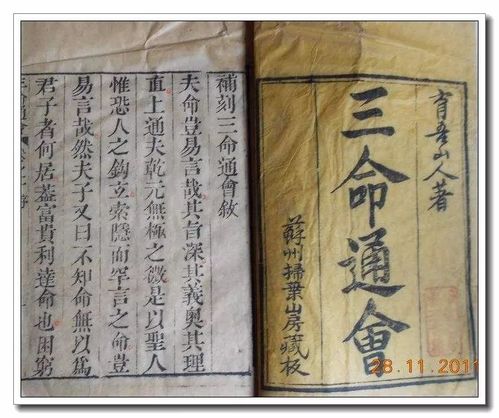 育吾山人著
三命通會
蘇州掃葉山房藏板
補刻三命通會敘
夫命豈易言哉其旨深其義奧其理
直上通夫乾元無極之微是以聖人
惟恐人之鈎立索隱而罕言之命豈
易言哉然夫子又曰不知命無以爲
君子者何居葢富貴利達命也困窮
28.11.2011